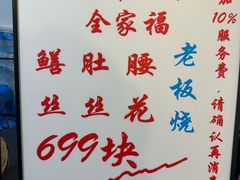 全家福
鳝肚腰
丝丝花
老板烧
699块
加10%服务费，请确认再消